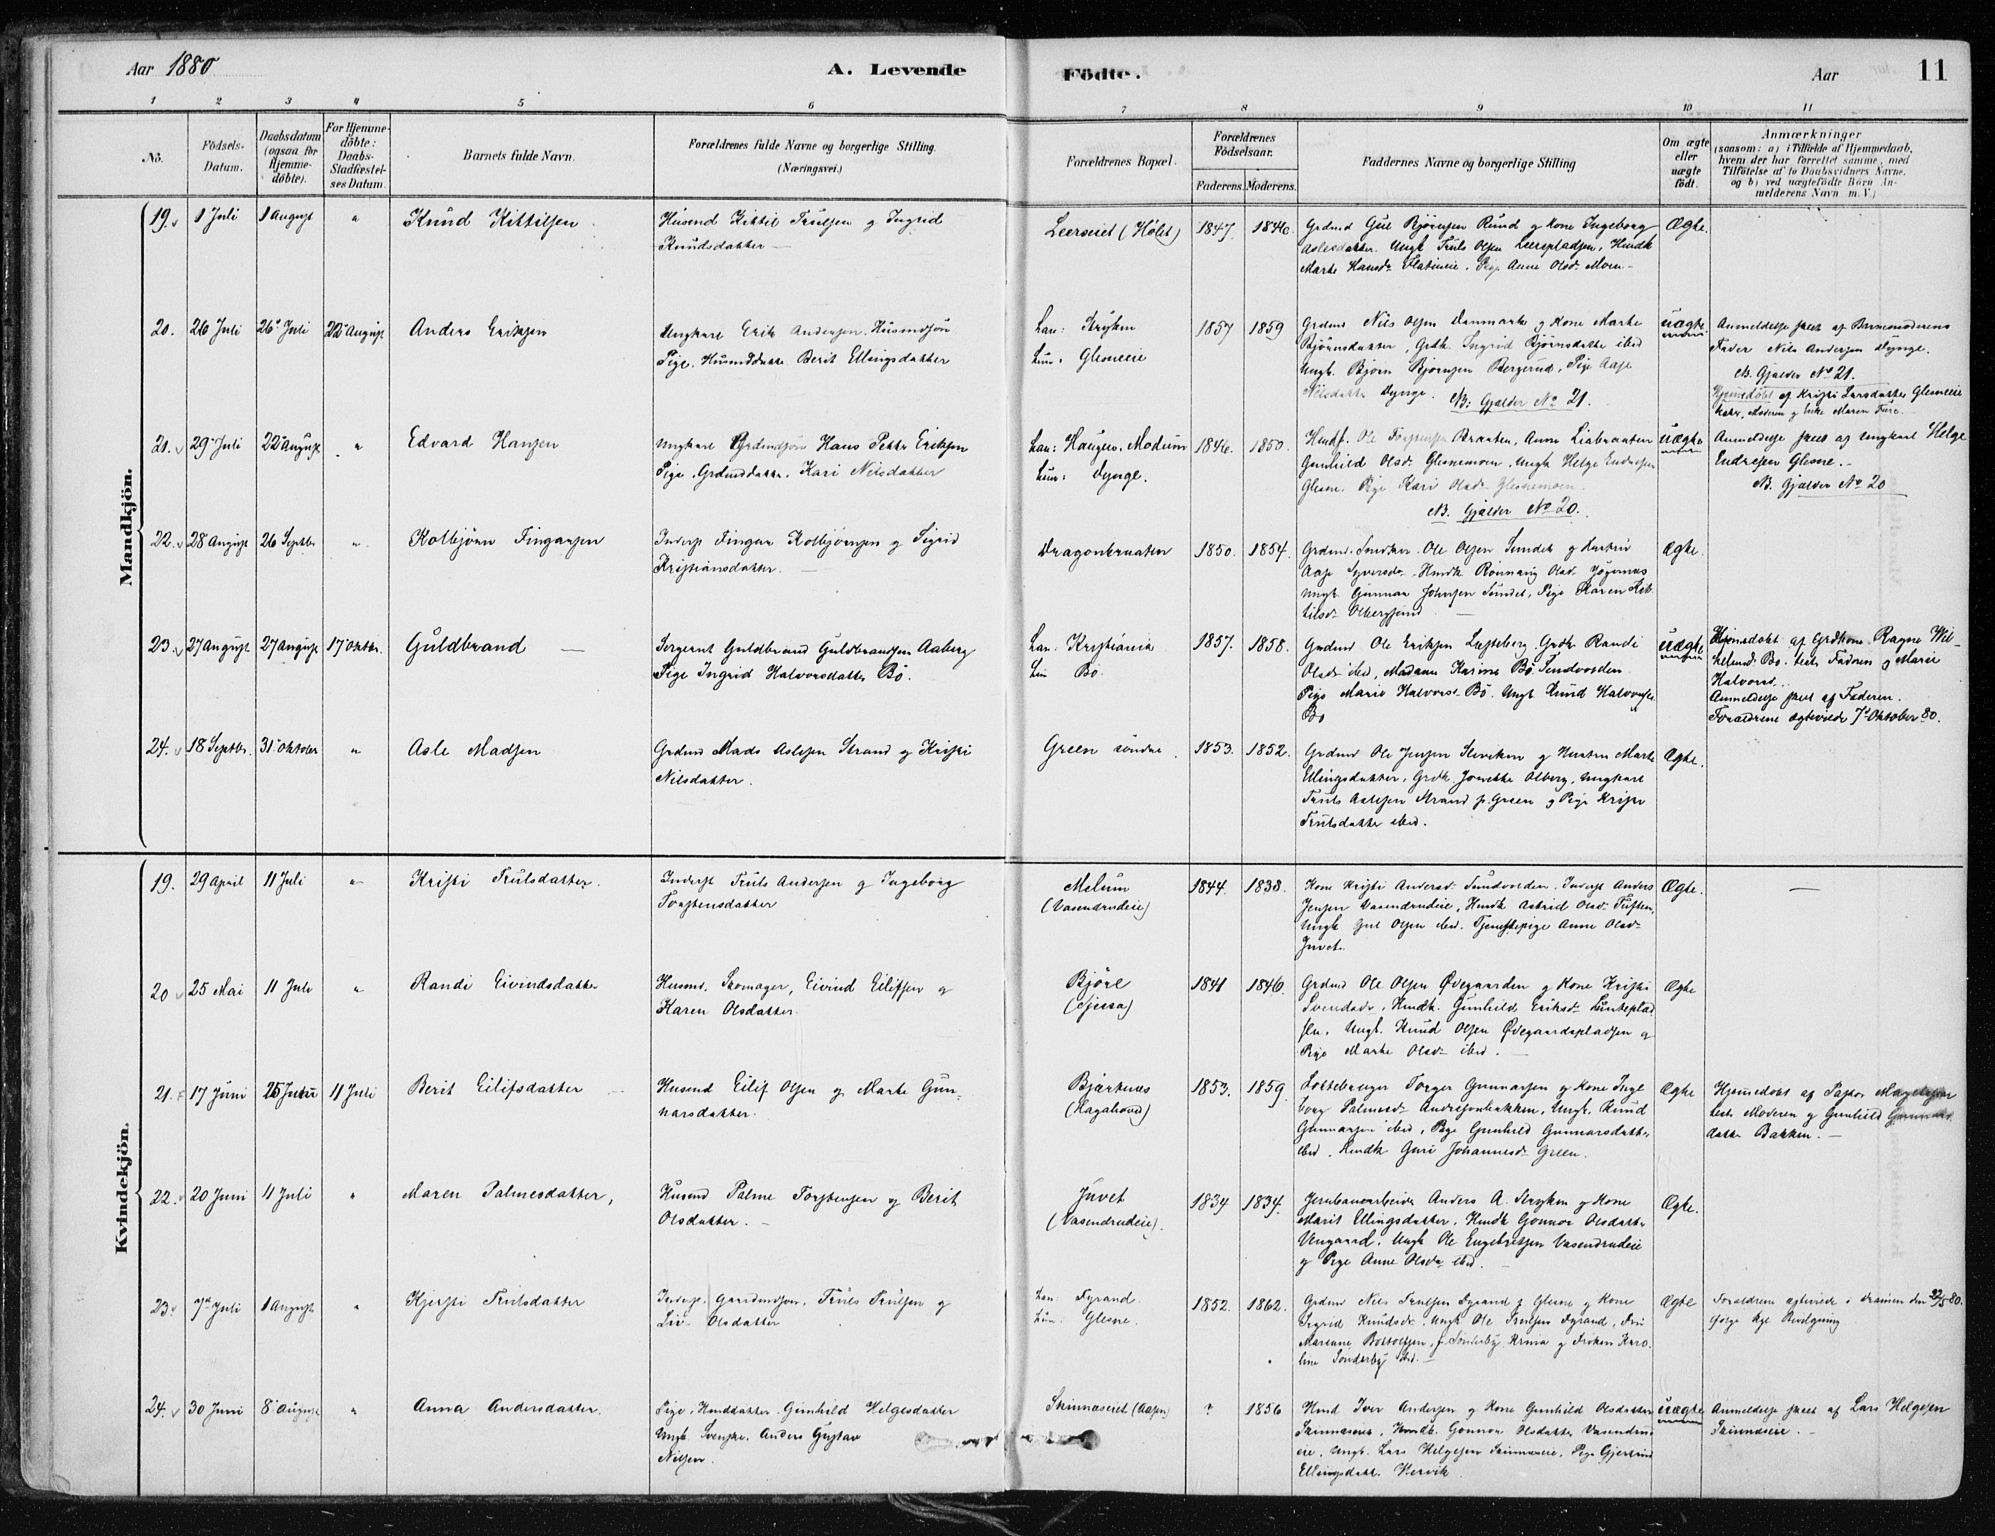 Aar 1880.
A. Levende Födte.
Aar 11
1 2 3 4 5 6 7 8 9 10 11
No. Födsels-Datum. Daabsdatum (ogsaa for Hjemme-döbte). For Hjemme-döbte: Daabs-Stadfæstelses Datum. Barnets fulde Navn. Forældrenes fulde Navne og borgerlige Stilling. (Næringsvei.)
Forældrenes Bopæl. Forældrenes Födselsaar. Faderens. Moderens. Faddernes Navne og borgerlige Stilling Om ægte eller uægte födt.
Anmærkninger
(saasom: a) i Tilfælde af Hjemmedaab,
hvem der har forrettet samme, med
Tilföielse af to Daabsvidners Navne,
og b) ved uægtefödte Börn An-
melderens Navn m. V.)
Mandkjön.
19. 1 Juli 1 August " Knud Kittilsen
Husmd Kittil Trulsen og Ingrid
Knudsdatter
Leerseiet (Hölet) 1847. 1846.
Grdmd Gul Björnsen Rund og Kone Ingeborg
Aslesdatter. Ungk Truls Olsen Leerspladsen, Hmdk
Marte Hansdr Flatineie. Pige Anne Olsdr Moen
Ægte.
20. 26 Juli 26 Juli 22 August Anders Eriksen
Ungkarl Erik Andersen, Husmdsön
Pige, Husmddatter Berit Ellingsdatter
han: Stryken
hun: Glesneeie
1857 1859
Grdmd Nils Olsen Danmarke og Kone Marte
Björnsdatter, Grdk. Ingrid Björnsdatter ibid
Ungk. Björn Björnsen Bergerud, Pige Aase
Nilsdatter Dynge. NB: Gjælder No 21.
uægte
Anmeldelse skeet af Barnemoderens
Fader Nils Andersen Dynge.
NB. Gjælder No 21.
Hjemmedöbt af Kristi Larsdatter Glesneeie
21. 29 Juli 22 August " Edvard Hansen
Ungkarl Grdmdsön Hans Petter Eriksen
Pige, Grdmddatter, Kari Nilsdatter
han: Haugen, Modum
hun: Dynge.
1846. 1850.
Hmdf. Ole Torstensen Braaten, Anne Liabraaten
Gunhild Olsdr Glesnemoen, Ungk Helge Endresen
Glesne. Pige Kari Olsdr Glesnemoen.
NB. Gjælder No 20.
uægte
Anmeldelse skeet af Ungkarl Helge
Endresen Glesne.
NB. Gjælder No 20
22. 28 August 26 Septbr " Kolbjörn Fingarsen
Inderst Fingar Kolbjörnsen og Sigrid
Kristiansdatter.
Dragonbraaten 1850. 1854.
Grdmd. Snedker Ole Olsen Sundet og Hustru
Aase Syversdr. Hmdk Rönnaug Olsdr
Ungk. Gunnar Johnsen Sundet, Pige Karen Kit
tilsdr
Ægte.
23. 27 August 27 August 17 Oktbr. Guldbrand
Sergeant Guldbrand Guldbrandsen Aaberg
Pige Ingrid Halvorsdatter Bö.
han. Kristiania
hun Bö.
1857. 1858.
Grdmd Ole Eriksen Leksteberg. Grdk. Randi
Olsdr ibid, Madame Karine Bö Sundvolden
Pige Marie Halvorsdr Bö. Ungk Knud Halvorsen
Bö
uægte
Hjemdöbt af Grdkone Ragne Wil-
helmsd. Bö. test. Faderen og Marie
Halvorsd.
Anmeldelse skeet af Faderen.
Forældrene ægteviede 7d Oktober 80.
24. 18 Septbr. 31 Oktober " Asle Madsen
Grdmd Mads Aslesen Strand og Kristi
Nilsdatter.
Green söndre 1853. 1852.
Grdmd Ole Jensen Sleviken og Hustru Marte
Ellingsdatter, Grdk. Olberg, Ungkarl
Truls Aslesen Strand p. Green og Pige Kristi
Trulsdatter ibid.
Ægte.
Kvindekjön.
19. 29 April 11 Juli " Kristi Trulsdatter.
Inderst Truls Andersen og Ingeborg
Torstensdatter
Melum
(Vasendrudeie)
1844. 1838.
Kone Kristi Andersd. Sundvolden, Inderst Anders
Jensen Vasendrudeie, Hmdk Astrid Olsdr Tuften,
Ungk Gul Olsen ibid. Tjenestepige Anne Olsdr
Juvet.
Ægte. —
20 25 Mai 11 Juli " Randi Eivindsdatter
Husmd. Skomager, Eivind Eilifsen og
Karen Olsdatter.
Björe
1841 1846.
Grdmd Ole Olsen Ödegaarden og Kone Kristi
Svendsdr, Hmdk. Gunhild Eriksdr Lunteplad
sen, Ungk. Knud Olsen Ödegaardspladsen og
Pige Marte Olsdr ibid.
Ægte
21. 17 Juni 25 Juni 11 Juli Berit Eilifsdatter
Husmd Eilif Olsen og Marte Gun-
narsdatter.
Bjærtnes
(Hagahovd)
1853. 1859.
Torger Gunnarsen og Kone Inge
borg Palmesdr Andresenbakken, Ungk. Knud
Gunnarsen ibid, Pige Gunhild Gunnarsdatter
ibid. Hmdk Guri Johannesdr Green.
Ægte
Hjemmedöbt af Pastor Magelssen
test. Moderen og Gunhild Gunnars
datter Bakken.
22. 20 Juni 11 Juli " Maren Palmesdatter,
Husmd Palme Torstensen og Berit
Olsdatter.
Juvet
(Vasendrudeie).
1834 1834.
Jernbanearbeider Anders A. Stryken og Kone
Marit Ellingsdatter, Hmdk Gonnor Olsdatter
Vengaard. Ungk Ole Engebretsen Vasendrudeie
og Pige Anne Olsdr ibid.
Ægte.
23. 7de Juli 1 August " Kjersti Trulsdatter
Inderst, Gaardmdsön, Truls Trulsen og
Liv Olsdatter
han: Fyrand
hun: Glesne
1852. 1862.
Grdmd Nils Trulsen Fyrand p. Glesne og Kone
Sigrid Knudsdr. Ungk Ole Trulsen Fyrand, Fru
Mariane Bottolfsen, f. Sönderby Krona og Fröken Karo-
line Sönderby ibid.
Ægte
Forældrene ægteviede i Dramen den 22/5 80.
ifölge Kgl Bevilgning
24. 30 Juni 8 August " Anna Andersdatter.
Pige, Hmddatter. Gunhild Helgesdatter
Ungk. Svenske. Anders Gustav
Nilsen.
Skinnæseiet (Aasen) ? 1856
Hmd Iver Andersen og Kone Gunhild Olsdatter
Skinnæseie, Hmdk. Gonnor Olsdatter Vasendrud
eie, Ungk. Lars Helgesen Skinnæseie, Pige Gjertrud
Ellingsdatter Hervik.
uægte
Anmeldelse skeet af Lars Helgesen
Skinnæseie.